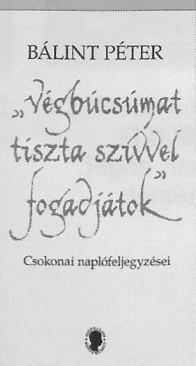 BÁLINT PÉTER
„Végbúcsúmat
tiszta szívvel
fogadjátok”
Csokonai naplófeljegyzései